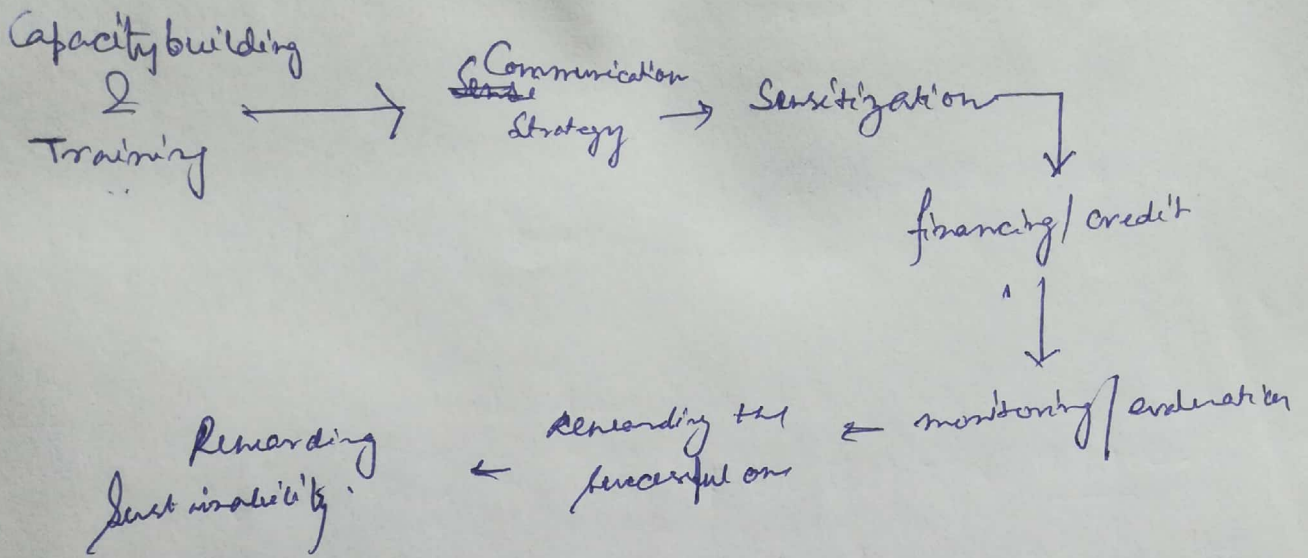 Capacity building
&
Training
Communication
Strategy
Sensitization
financing/credit
monitoring/evaluation
rewarding the
successful one
Rewarding
Sustainability.